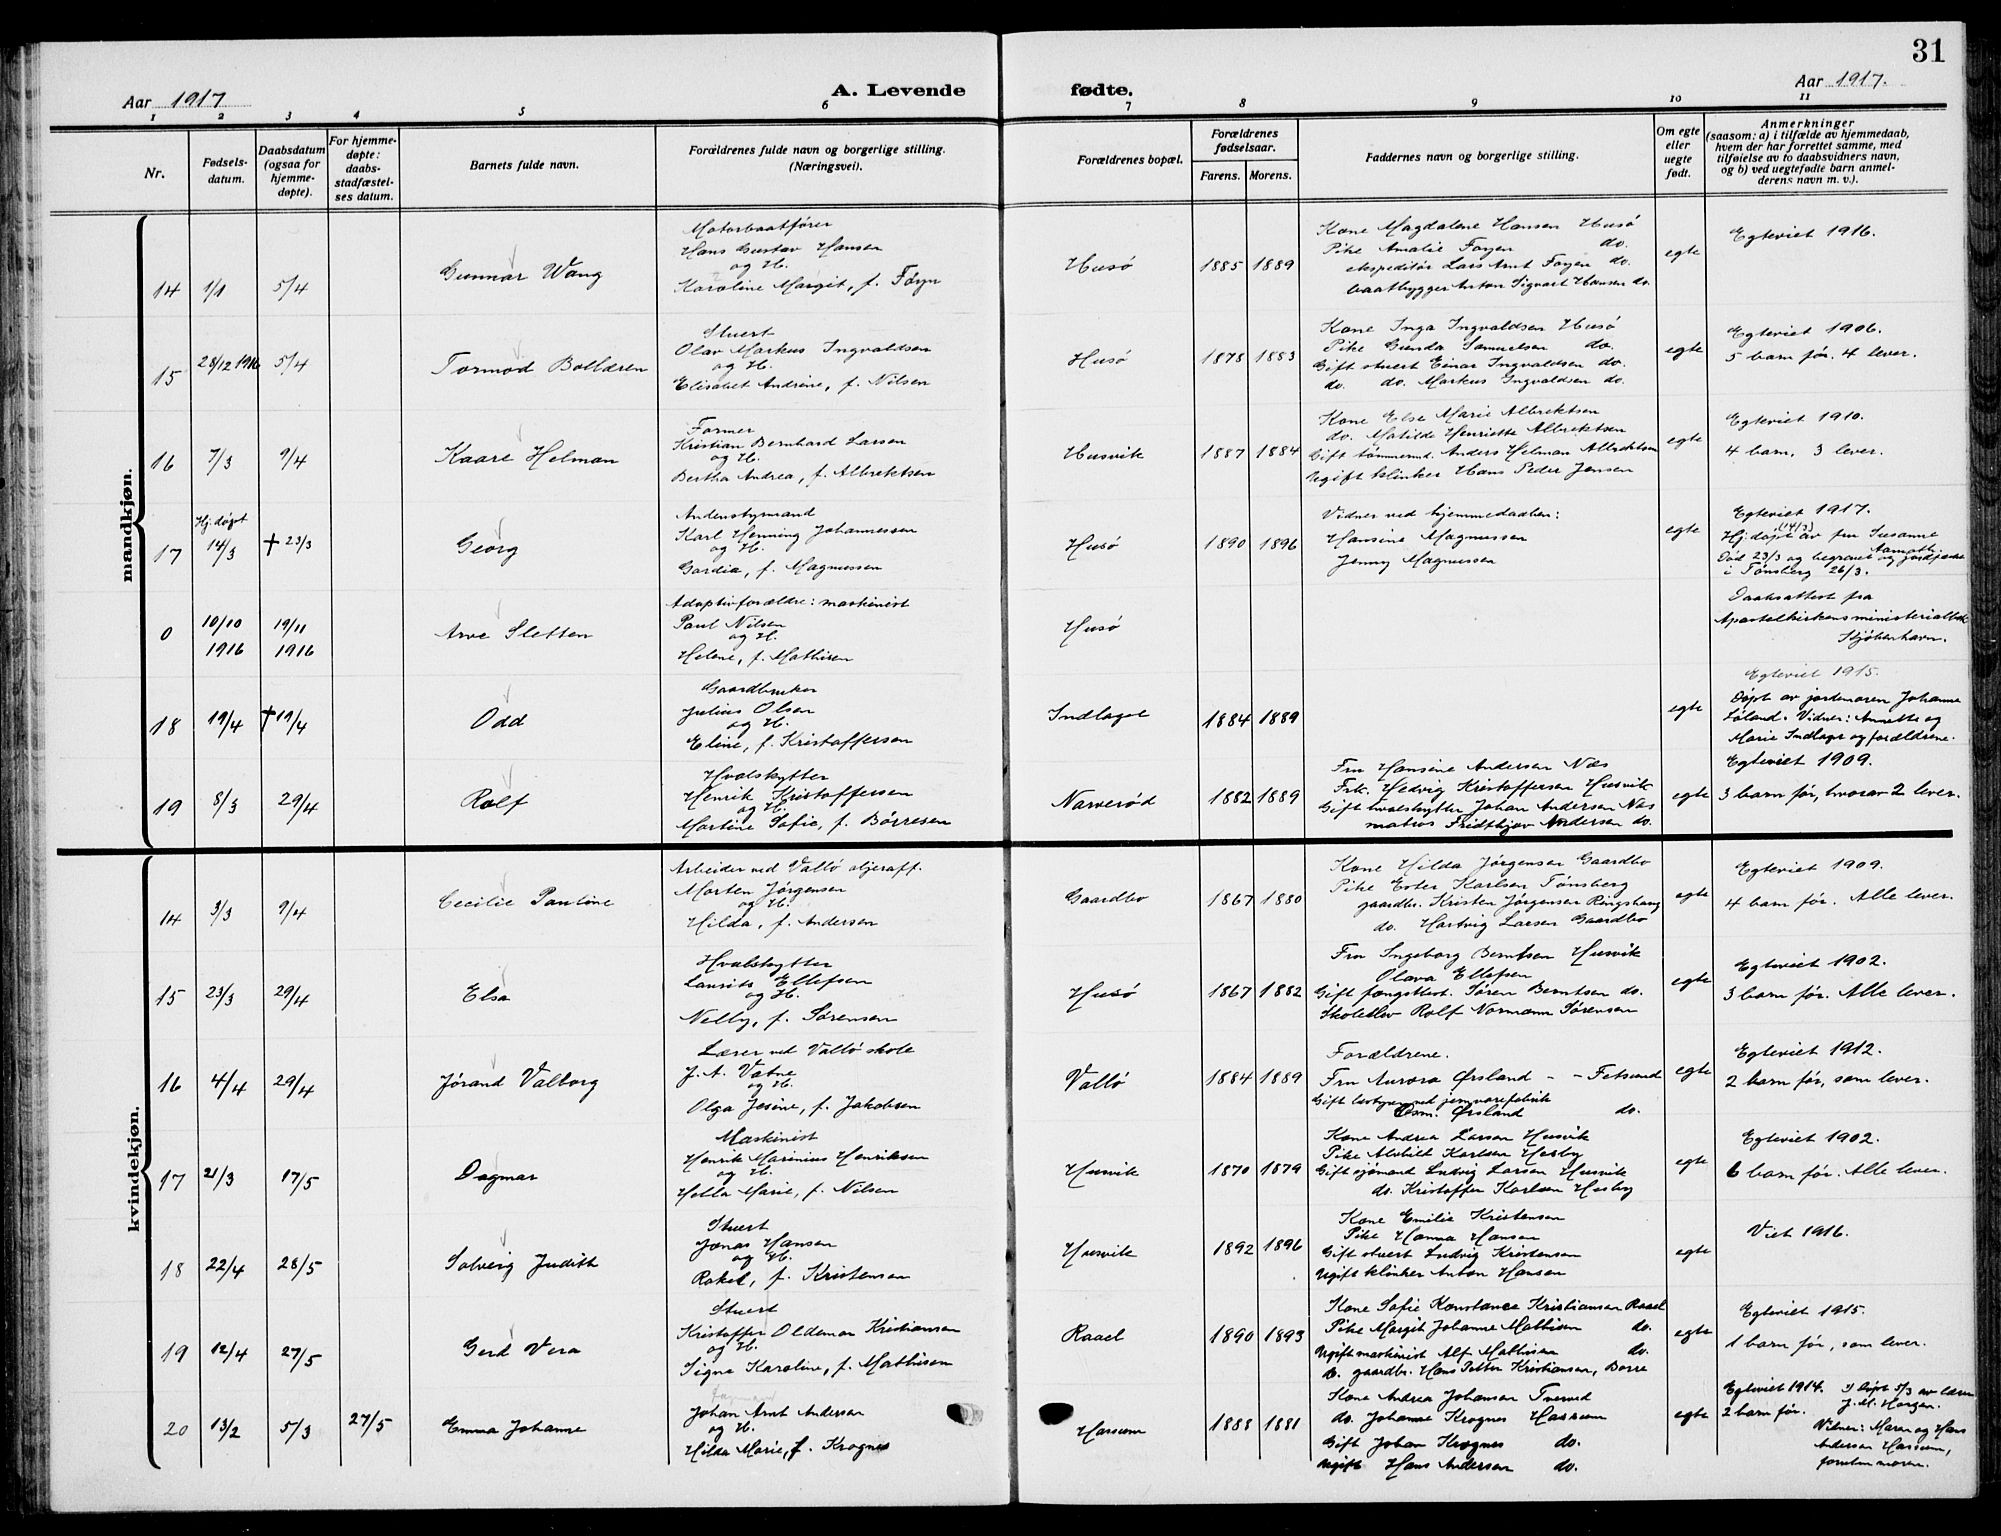 31
Aar 1917
A. Levende fødte.
Aar 1917.
1 2 3 4 5 6 7 8 9 10 11
Nr.
Fødsels-
datum.
Daabsdatum
(ogsaa for
hjemme-
døpte).
For hjemme-
døpte:
daabs-
stadfæstel-
ses datum.
Barnets fulde navn.
Forældrenes fulde navn og borgerlige stilling.
(Næringsvei).
Forældrenes bopæl.
Forældrenes
fødselsaar.
Farens. Morens.
Faddernes navn og borgerlige stilling.
Om egte
eller
uegte
født.
Anmerkninger
(saasom: a) i tilfælde av hjemmedaab,
hvem der har forrettet samme, med
tilføielse av to daabsvidners navn,
og b) ved uegtefødte barn anmel-
derens navn m. v.).
mandkjøn.
14 1/1 5/4
Gunnar Wang
Motorbaatfører
Hans Gustav Hansen
og H.
Karoline Margit, f. Føyn
Husö
1885 1889
Kone Magdalene Hansen Husö
Pike Amalie Foyen do.
ekspeditør Lars Arnt Foyen do.
baatbygger Anton Sigvart Hansen do.
egte
Egteviet 1916.
15 28/12 1916 5/4
Tormod Bolldren
Stuert
Olav Markus Ingvaldsen
og H.
Elisabet Andrine, f. Nilsen
Husö
1878 1883
Kone Inga Ingvaldsen Husö
Pike Gunda Samuelsen do.
Gift stuert Einar Ingvaldsen do.
do. do. Markus Ingvaldsen do.
egte
Egteviet 1906.
5 barn før. 4 lever.
16 7/3 9/4
Kaare Helman
Former
Kristian Bernhard Larsen
og H.
Bertha Andrea, f. Albrektsen
Husvik
1887 1884
Kone Else Marie Albrektsen
do. Matilde Henriette Albrektsen
Gift tømmermd. Anders Helman Albrektsen
Ugift klinker Hans Peder Jensen
egte
Egteviet 1910.
4 barn, 3 lever.
17 Hj. døpt
14/3 † 23/3
Georg
Andenstyrmand
Karl Henning Johannessen
og H.
Gardia, f. Magnussen
Husö
1890 1896
Vidner ved hjemmedaaben:
Hansine Magnussen
Jenny Magnussen
egte
Egteviet 1917.
(14/3)
Hj. døpt av fru Susanne
Død 23/3 og begravet og jordfæstet
i Tønsberg 26/3.
0 10/10 19/11
1916 1916
Arve Sletten
Adoptivforældre: maskinist
Paul Nilsen
og H.
Helene, f. Mathisen
Husö
Daabsattest fra
Apostelkirkens ministerialbok
Kjøbenhavn.
18 19/4 † 19/4
Odd
Gaardbruker
Julius Olsen
og H.
Eline, f. Kristoffersen
Indlaget
1884 1889
egte
Egteviet 1915.
Døpt av jordmoren Johanne
Løland. Vidner: Annette og
Marie Indlaget og forældrene.
19 8/3 29/4
Rolf
Hvalskytter
Henrik Kristoffersen
og H.
Martine Sofie, f. Børresen
Narverød
1882 1889
Fru Hansine Andersen Næs
Frk. Hedvig Kristoffersen Husvik
Gift hvalskytter Johan Andersen Næs
matros Fridthjov Andersen do.
egte
Egteviet 1909.
3 barn før, hvorav 2 lever.
kvindekjøn.
14 3/3 9/4
Cecilie Pauline
Arbeider ved Vallö oljeraff.
Morten Jørgensen
og H.
Hilda, f. Andersen
Gaardbo
1867 1880
Kone Hilda Jørgensen Gaardbo
Pike Ester Karlsen Tønsberg
gaardbr. Kristen Jørgensen Ringshaug
do. Hartvig Larsen Gaardbo
egte
Egteviet 1909.
4 barn før. Alle lever.
15 23/3 29/4
Elsa
Hvalskytter
Laurits Ellefsen
og H.
Nelly, f. Sørensen
Husö
1867 1882
Fru Ingeborg Berntsen Husvik
Olava Ellefsen
Gift fangstbest. Søren Berntsen do.
Skoleelev Rolf Normann Sørensen
egte
Egteviet 1902.
3 barn før. Alle lever.
16 4/4 29/4
Jørand Valborg
Lærer ved Vallö skole
J. A. Vatne
og H.
Olga Jesine, f. Jakobsen
Vallö
1884 1889
Forældrene.
Fru Aurora Ørsland - - Fetsund
Gift bestyrer ved jernvarefabrik
Osm. Ørsland do.
egte
Egteviet 1912.
2 barn før, som lever.
17 21/3 17/5
Dagmar
Maskinist
Henrik Marinius Henriksen
og H.
Hella Marie, f. Nilsen
Husvik
1870 1879
Kone Andrea Larsen Husvik
Pike Alvilet Karlsen Hesby
Gift sjømand Ludvig Larsen Husvik
do. Kristoffer Karlsen Hesby
egte
Egteviet 1902.
6 barn før. Alle lever.
18 22/4 28/5
Solveig Judith
Stuert
Jonas Hansen
og H.
Rakel, f. Kristensen
Husvik
1892 1896
Kone Emilie Kristensen
Pike Hanna Hansen
Gift stuert Ludvig Kristensen
Ugift klinker Anton Hansen
egte
Viet 1916.
19 12/4 27/5
Gerd Vera
Stuert
Kristoffer Oldemar Kristiansen
og H.
Signe Karoline, f. Mathisen
Raael
1890 1893
Kone Sofie Konstance Kristiansen Raael
Pike Margit Johanne Mathisen do.
Ugift maskinist Alf Mathisen do.
do. gaardbr. Hans Petter Kristiansen, Borre
egte
Egteviet 1915.
1 barn før, som lever.
20 13/2 5/3 27/5
Emma Johanne
Johan Arnt Andersen
og H.
Hilda Marie, f. Krognes
Hassum
1888 1881
Kone Andrea Johansen Tverved
do. Johanne Krognes Hassum
Gift Johan Krognes do.
Ugift Hans Andersen do.
egte
Egteviet 1914.
2 barn før.
Døpt 5/3 av lærer
J. M. Horgen.
Vidner: Maren og Hans
Andersen Hassum,
foruten moren.